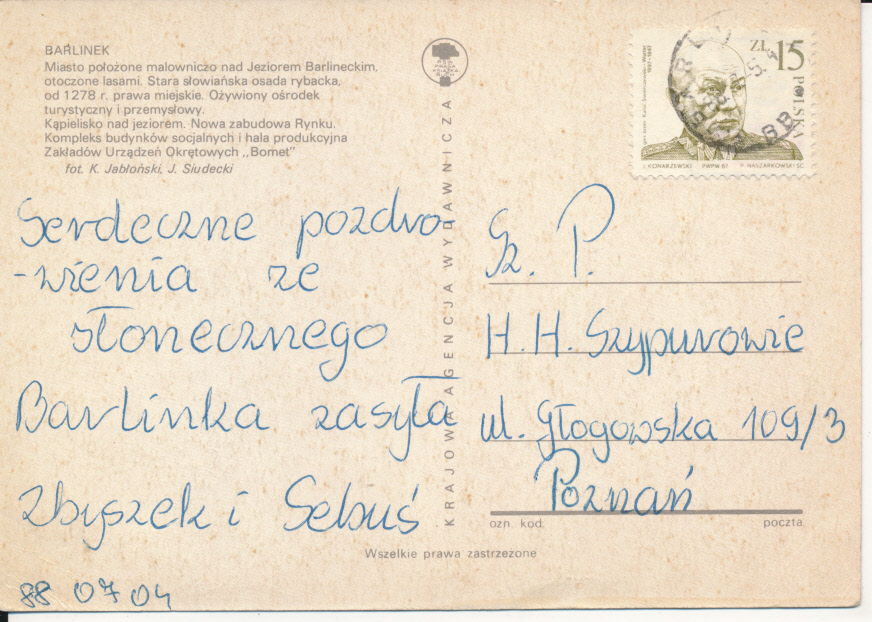 BARLINEK
Miasto położone malowniczo nad Jeziorem Barlineckim,
otoczone lasami. Stara słowiańska osada rybacka,
od 1278 r. prawa miejskie. Ożywiony ośrodek
turystyczny i przemysłowy.
Kąpielisko nad jeziorem. Nowa zabudowa Rynku.
Kompleks budynków socjalnych i hala produkcyjna
Zakładów Urządzeń Okrętowych „Bomet”
fot. K. Jabłoński, J. Siudecki
Serdeczne pozdro-
-wienia ze
słonecznego
Barlinka zasyła
Zbyszek i Sebuś
88 07 04
KRAJOWA AGENCJA WYDAWNICZA
ZŁ 15
POLSKA
J. KONARZEWSKI PWPW 87 P. NASZARKOWSKI SC.
Sz. P.
H. H. Szypurowie
ul. Głogowska 109/3
Poznań
ozn. kod. poczta
Wszelkie prawa zastrzeżone